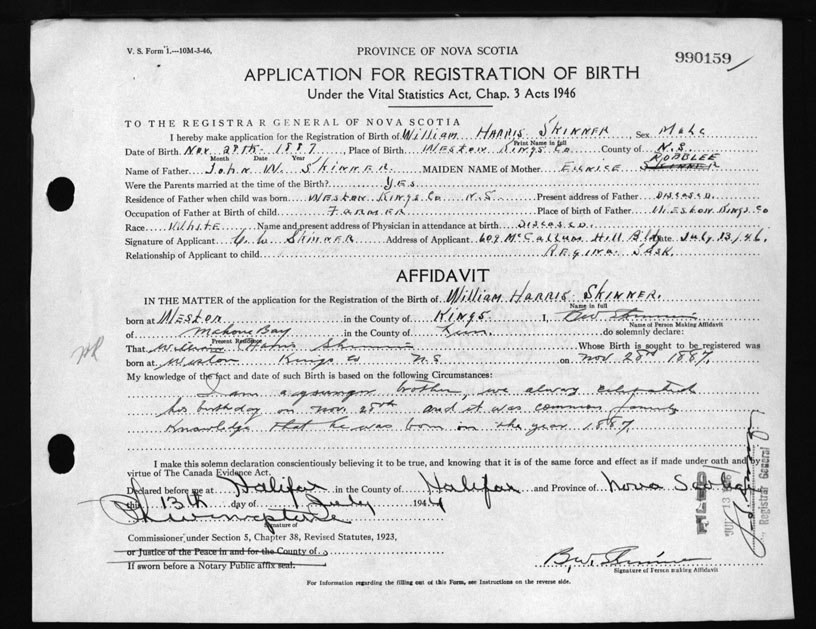 V. S. Form 1.—10M-3-46,
PROVINCE OF NOVA SCOTIA
990159
APPLICATION FOR REGISTRATION OF BIRTH
Under the Vital Statistics Act, Chap. 3 Acts 1946
TO THE REGISTRAR GENERAL OF NOVA SCOTIA
I hereby make application for the Registration of Birth of William Harris Skinner, Sex Male
Print Name in full
Date of Birth Nov. 28th 1887, Place of Birth Weston Kings Co County of N.S.
Month Date Year
Robblee
Name of Father John W. Skinner MAIDEN NAME of Mother Eunice Skinner
Were the Parents married at the time of the Birth? Yes
Residence of Father when child was born Weston Kings Co N.S. Present address of Father Discased.
Occupation of Father at Birth of child Farmer Place of birth of Father Weston Kings Co
Race White Name and present address of Physician in attendance at birth Discased.
Signature of Applicant W Skinner Address of Applicant 609 McCallum Hill Bldg Date July 13/46.
Relationship of Applicant to child Regina Sask.
AFFIDAVIT
IN THE MATTER of the application for the Registration of the Birth of William Harris Skinner.
Name in full
born at Weston in the County of Kings I, B W Skinner
Name of Person Making Affidavit
of Mahone Bay in the County of Lun. do solemnly declare:
Present Residence
That William Harris Skinner Whose Birth is sought to be registered was
born at Weston Kings Co N.S on Nov 28th 1887.
My knowledge of the fact and date of such Birth is based on the following Circumstances:
I am a younger brother, we always celebrated
his birthday on Nov. 28th and it was common family
knowledge that he was born in the year 1887.
I make this solemn declaration conscientiously believing it to be true, and knowing that it is of the same force and effect as if made under oath and by
virtue of The Canada Evidence Act.
Declared before me at Halifax in the County of Halifax and Province of Nova Scotia
this 13th day of July 194
Signature of
Commissioner under Section 5, Chapter 38, Revised Statutes, 1923,
or Justice of the Peace in and for the County of
If sworn before a Notary Public affix seal.
B.W. Skinner
Signature of Person making Affidavit
For Information regarding the filling out of this Form, see Instructions on the reverse side.
FILED
JUL 13
Registrar General